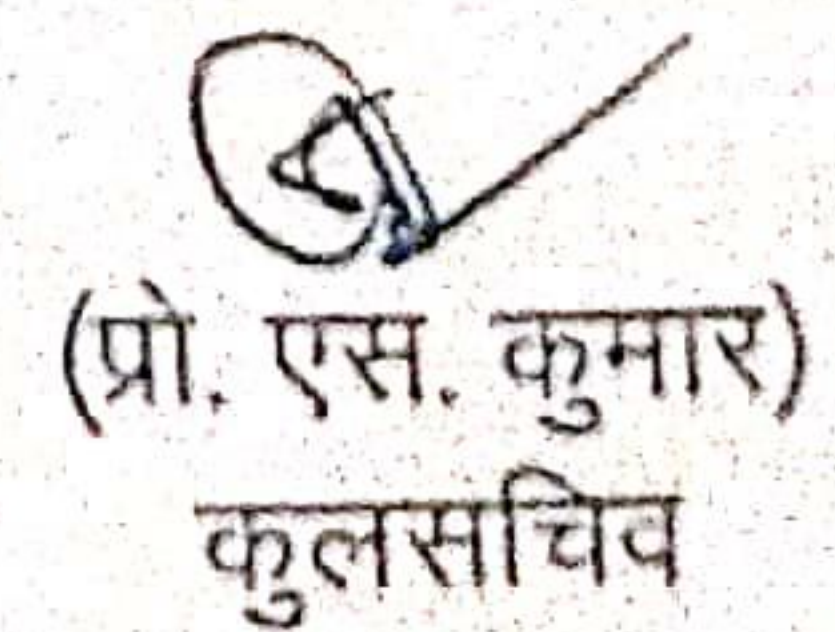 (प्रो. एस. कुमार)
कुलसचिव